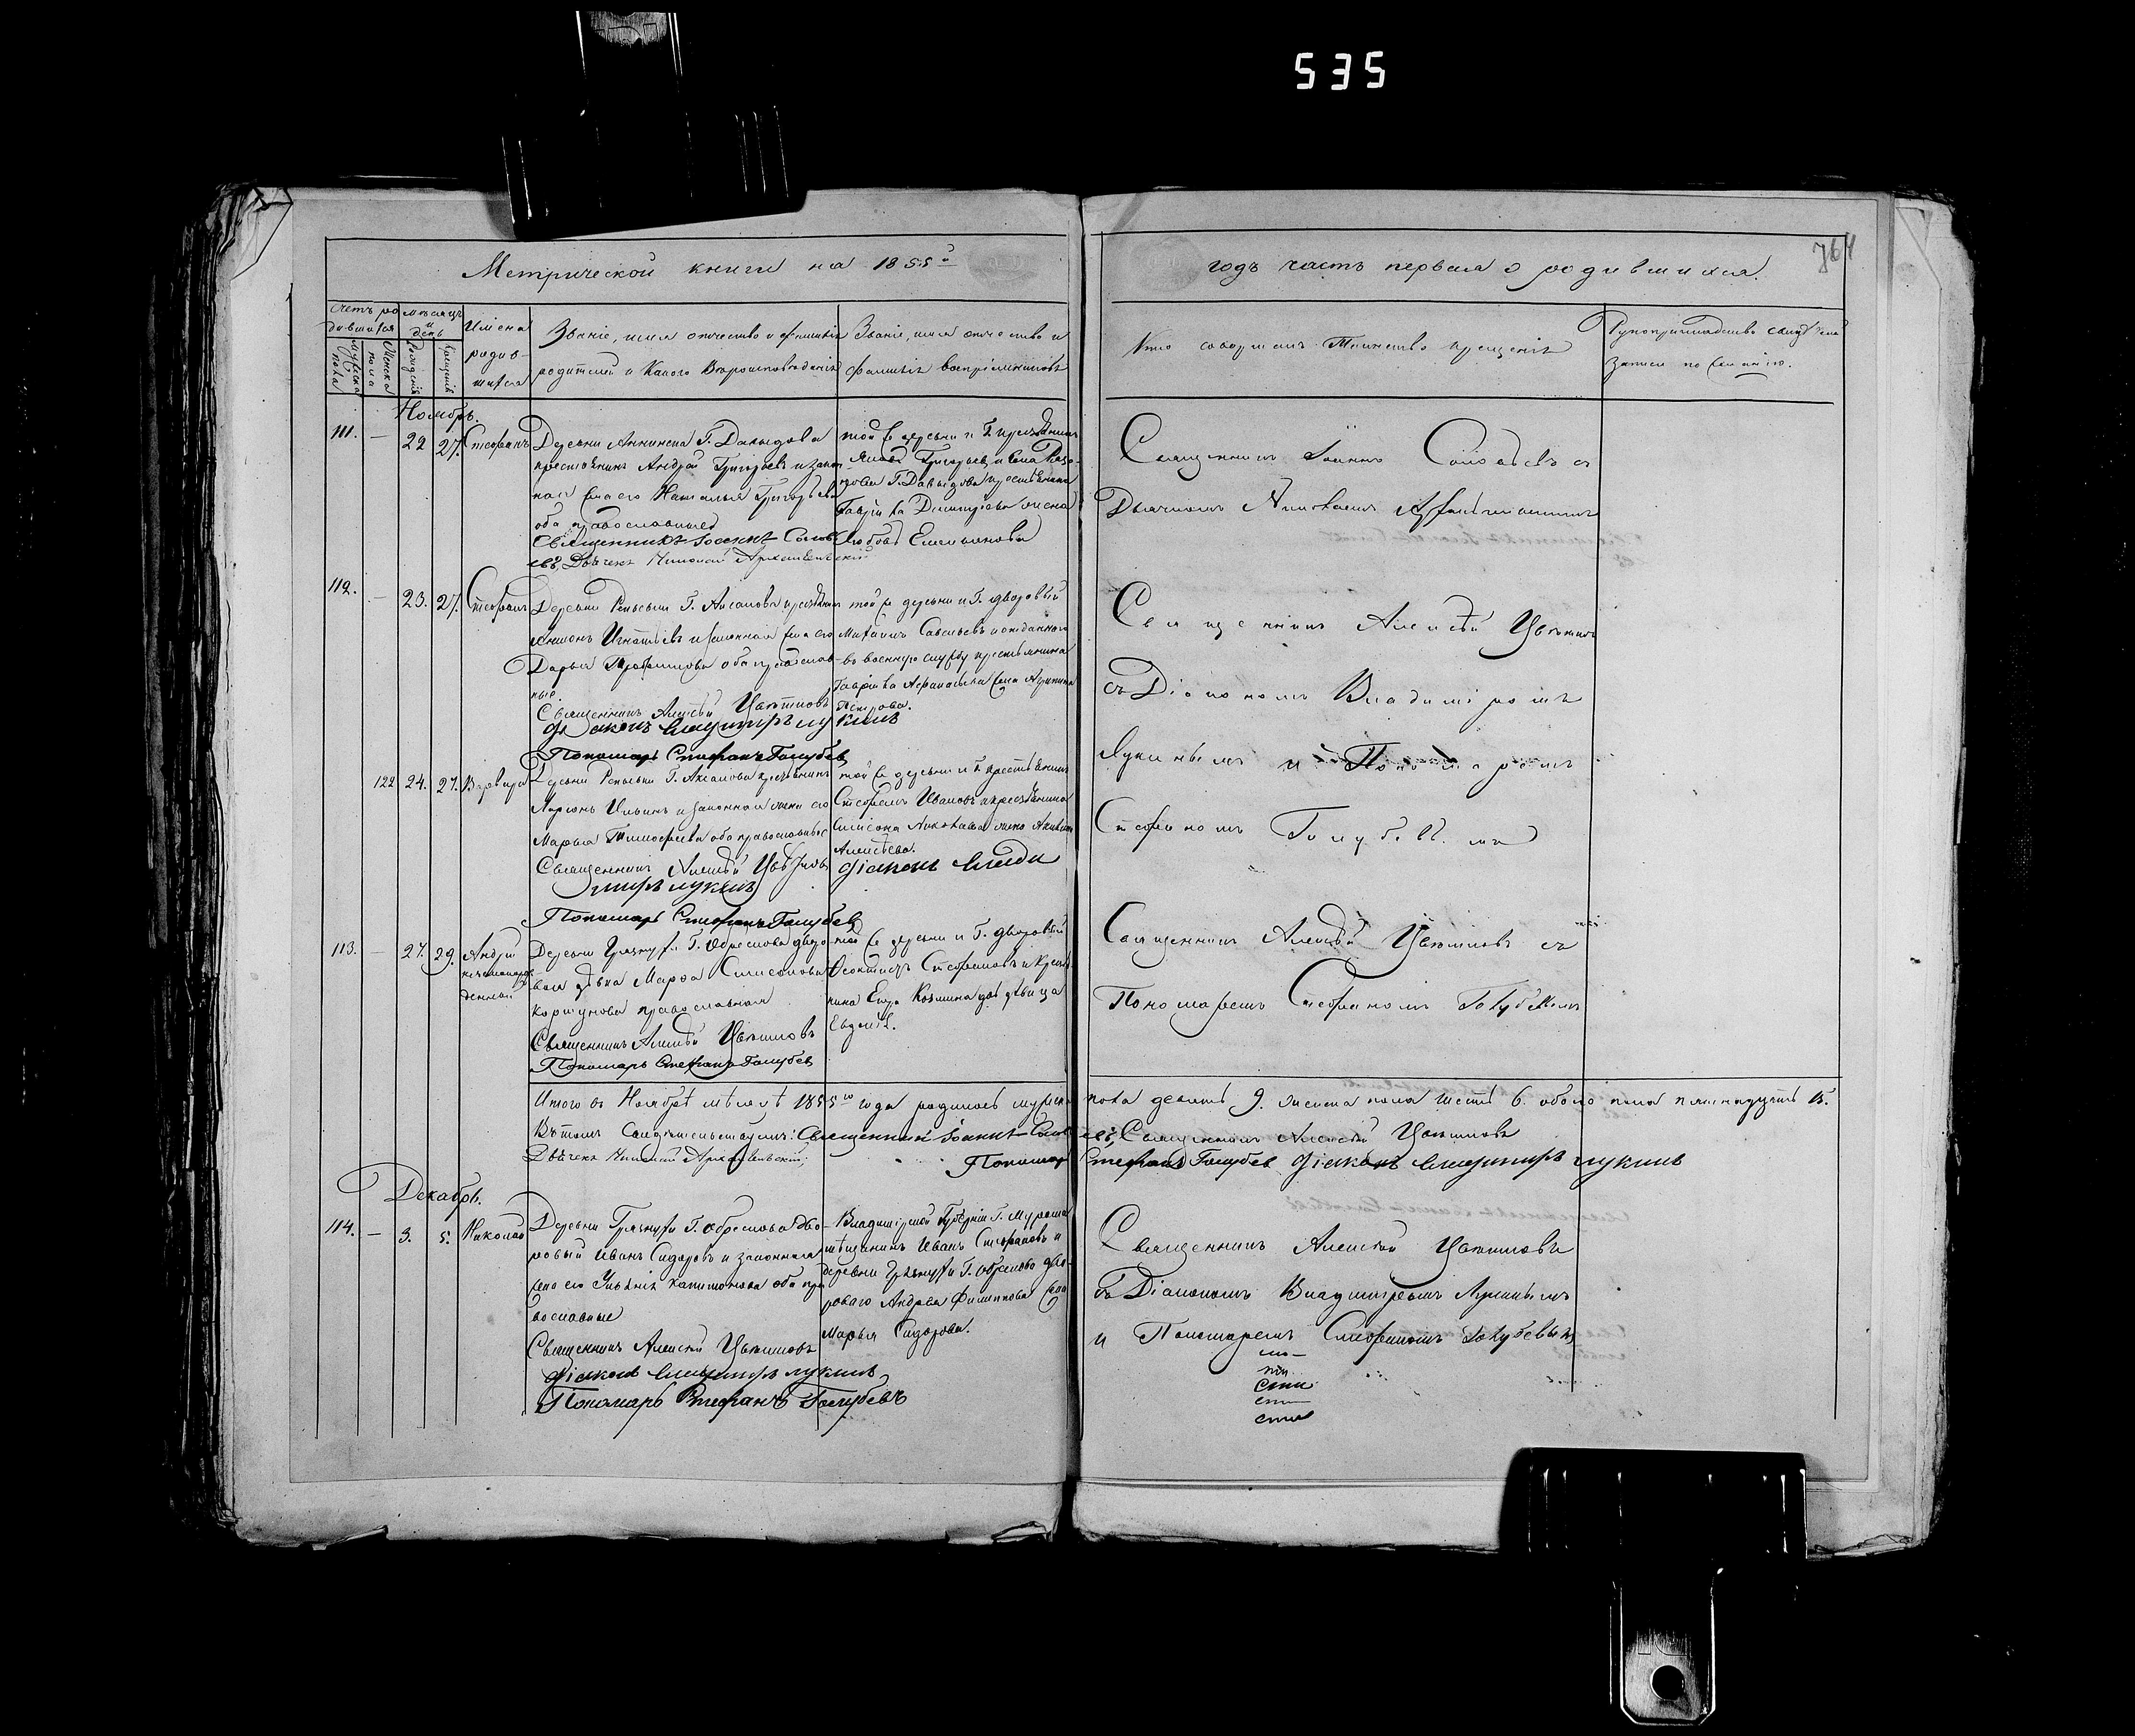 535
764
Метрической книги на 1855й
годъ часть первая о родившихся.
Счетъ родившихся
Мужеска пола
Женска пола
Мѣсяцъ и день
Рожденія
Крещенія
Имена родившихся
Званіе, имя отчество и фамилія
родителей и какого вѣроисповѣданія
Званіе, имя отчество и
фамилія воспріемниковъ
Кто совершалъ Таинство крещенія
Рукоприкладство свидѣтелей
записи по желанію.
Ноябрь.
111. — 22 27. Стефанъ
Деревни Аннинска Г. Давыдова
крестьянинъ Андрей Григорьевъ и закон
ная жена его Наталья Григорьева
оба православные
Священникъ Іоаннъ Соловь
евъ, Дьячекъ Николай Архангельскій
той же деревни и Г. крестьянинъ
Григорьевъ и села
Г. Давыдова крестьянина
Гавріила Димитріева жена
Любовь Емельянова
Священникъ Іоаннъ Соловьевъ съ
Дьячкомъ Николаемъ Архангельскимъ
112. — 23. 27. Стефанъ
Деревни Г. Аксакова крестьянинъ
Игнатьевъ и законная жена его
Дарья Трофимова оба православ
ные.
Священникъ Алексѣй Цвѣтковъ
Діаконъ Владиміръ Лукинъ
Пономарь Стефанъ Голубев
той же деревни и Г. дворовый
Михаилъ Савельевъ и отданнаго
въ военную службу крестьянина
Гавріила Афанасьева жена
Петрова.
Священникъ Алексѣй Цвѣтковъ
съ Діакономъ Владиміромъ
Лукинымъ и Пономаремъ
Стефаномъ Голубевымъ
122 24. 27. Варвара
Деревни Г. Аксакова крестьянинъ
Ларіонъ Ильинъ и законная жена его
Марья Тимофеева оба православные
Священникъ Алексѣй Цвѣтковъ
діаконъ Влади
міръ Лукинъ
Пономарь Стефанъ Голубев
той же деревни и Г. крестьянинъ
Стефанъ Ивановъ и крестьянина
Симеона Николаева жена
Алексѣева.
113. — 27. 29. Андрей
незаконнорож
денный
Деревни Г. Обрескова дворо
вая дѣвка Марфа Симеонова
Коршунова православная
Священникъ Алексѣй Цвѣтковъ
Пономарь Стефанъ Голубев
той же деревни и Г. дворовый
Феоктистъ Стефановъ и кресть
нина Егора Козмина дѣвица
Евдокія.
Священникъ Алексѣй Цвѣтковъ съ
Пономаремъ Стефаномъ Голубевымъ
Итого въ Ноябрѣ мѣсяцѣ 1855го года родилось мужеска
пола девять 9. женска пола шесть 6. обоего пола пятнадцать 15.
Въ томъ свидѣтельствуемъ: Священникъ Іоаннъ Соловь
евъ, Священникъ Алексѣй Цвѣтковъ
Дьячекъ Николай Архангельскій,
Пономарь Стефанъ Голубев діаконъ Владиміръ Лукинъ
Декабрь.
114. — 3. 5. Николай
Деревни Г. Обрескова дво
ровый Иванъ Сидоровъ и законная
жена его Ульянія Капитонова оба пра
вославные
Священникъ Алексѣй Цвѣтковъ
діаконъ Владиміръ Лукинъ
Пономарь Стефанъ Голубевъ
Владимірской Губерніи Г. Мурома
мѣщанинъ Иванъ Стефановъ и
деревни Г. Обрескова дво
роваго Андрея Филиппова жена
Марья Сидорова.
Священникъ Алексѣй Цвѣтковъ
съ Діакономъ Владиміромъ Лукинымъ
и Пономаремъ Стефаномъ Голубевымъ